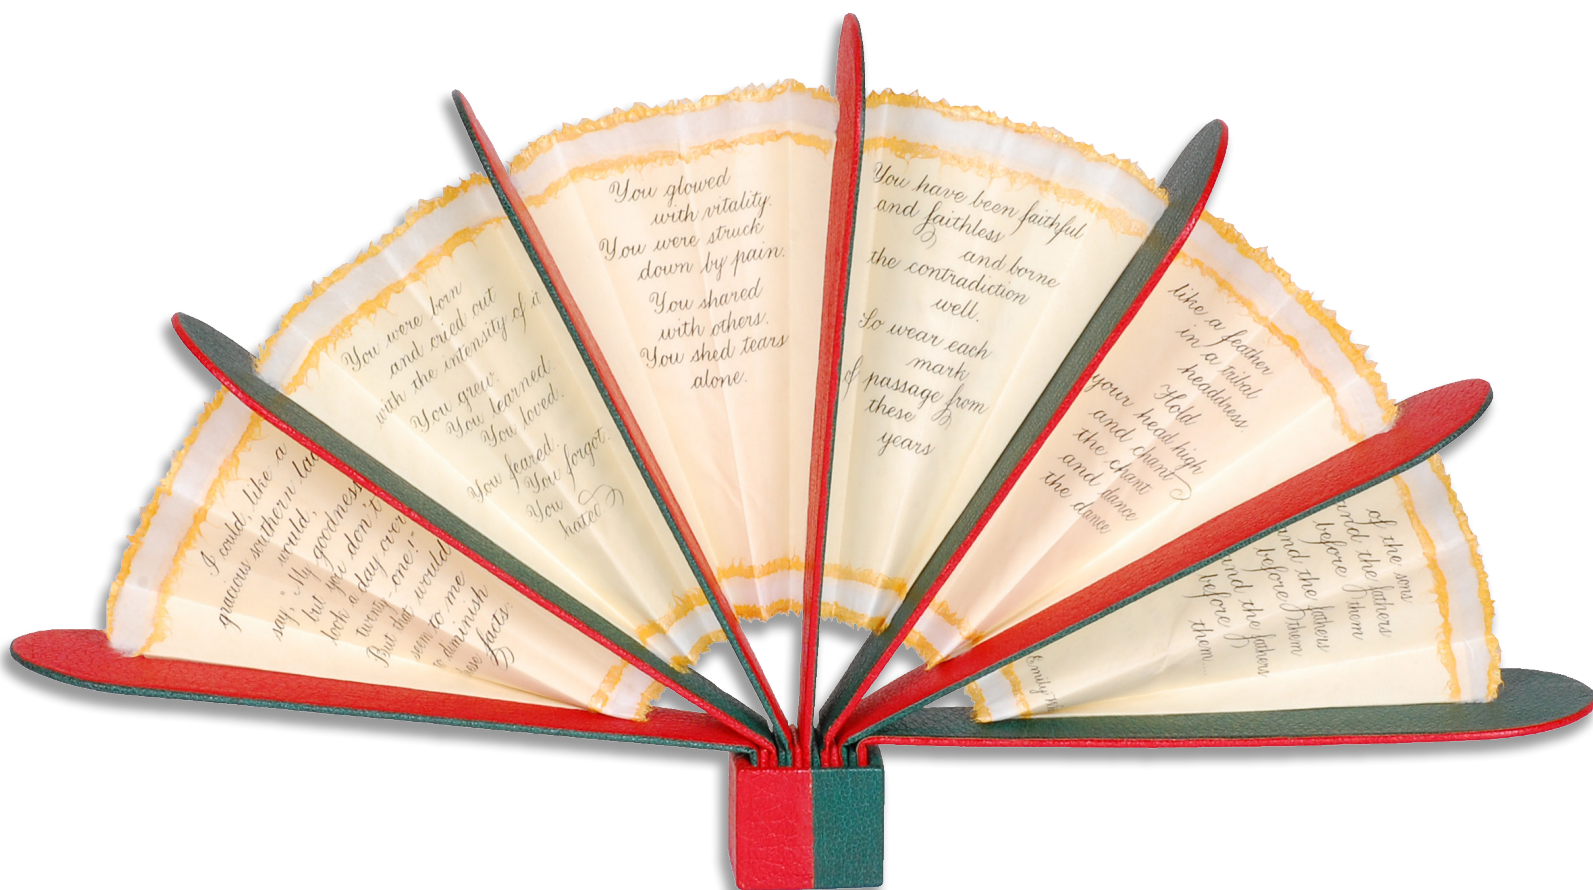 I could, like a
gracious southern
would,
say, "My goodness
but you don't
look a day over
twenty one!"
But that would
seem to me
to diminish
these facts.
You were born
and cried out
with the intensity of it
You grew.
You learned.
You loved.
You feared.
You forgot.
You
hated
You glowed
with vitality.
You were struck
down by pain.
You shared
with others.
You shed tears
alone.
You have been faithful
and faithless
and borne
the contradiction
well.
So wear each
mark
of passage from
these
years
like a feather
in a tribal
headdress.
Hold
your head high
and chant
the chant
and dance
the dance
of the sons
and the fathers
before them
and the fathers
before them
and the fathers
before
them
Emily